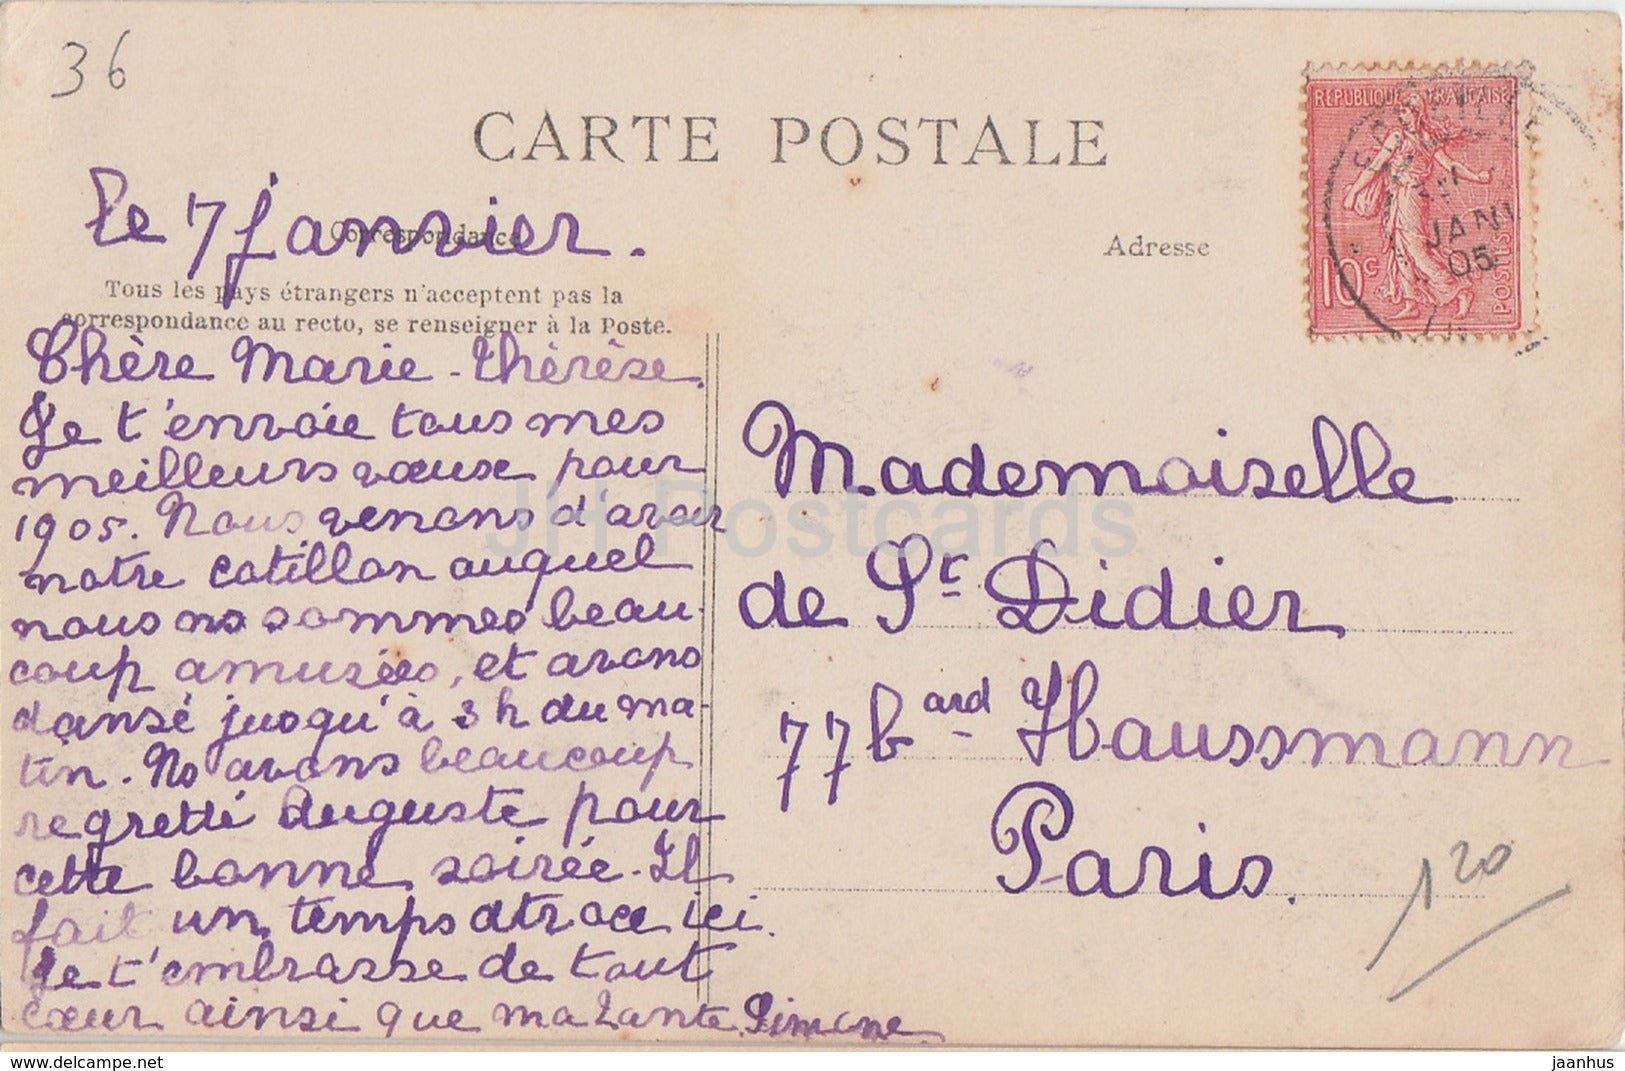 36
CARTE POSTALE
le 7 janvier.
Correspondance
Tous les pays étrangers n'acceptent pas la
correspondance au recto, se renseigner à la Poste.
Chère Marie-thérèse.
Je t'envoie tous mes
meilleurs vœux pour
1905. Nous venons d'avoir
notre cotillon auquel
nous ns sommes beau-
coup amusées, et avons
dansé jusqu'à 3 h du ma-
tin. Ns avons beaucoup
regretté Auguste pour
cette bonne soirée. Il
fait un temps atroce ici.
Je t'embrasse de tout
cœur ainsi que ma tante. Simone
Adresse
REPUBLIQUE FRANÇAISE
10c
POSTES
JANV
05
Mademoiselle
de St Didier
77 bard Haussmann
Paris.
120
JH Postcards
www.delcampe.net
jaanhus